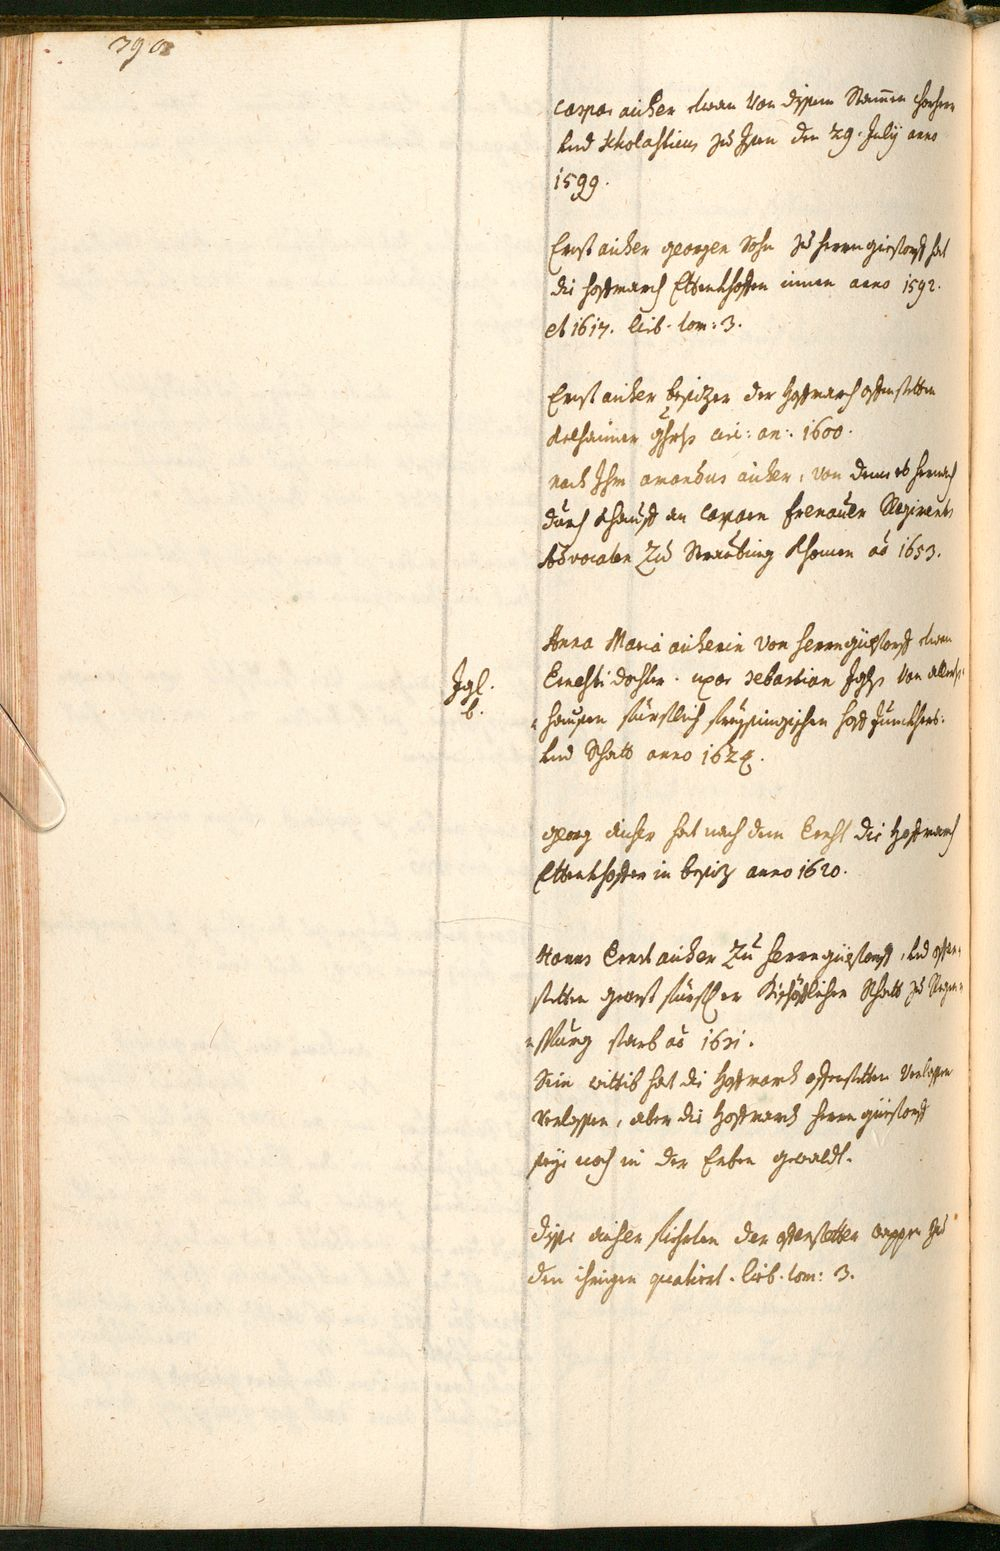 790
Caspar aicher etwan von disem Stammen Chorherr
und Scholasticus zu Isen den 29. July anno
1599.
Ernst aicher georgen Sohn zu herrngierstorff hat
die hoffmarch Ettenkhoffen innen anno 1592.
et 1617. lieb. tom: 3.
Ernst aicher besizer der hoffmarch offenstetten
Kelhaimer ghrts circ: an: 1600.
nach Ihm amandus aicher, von deme es hernach
durch Khauff an Casparn frenauer Regiments
Advocaten Zu Straubing Khomen ao 1653.
Anna Maria aicherin von herrngierstorff etwan
Ernesti dochter. uxor Sebastian Igls von
hausen fürstlich freysingischen hoff Junckhers.
und Rhats anno 1624.
Igl.
b.
georg aicher hat nach dem Ernst die hoffmarch
Ettenkhoffen in besiz anno 1620.
Hanns Ernst aicher Zu herrngierstorff, und offen-
stetten gewest fürstl er Bischöfflichen Rhatt zu Regen-
spurg starb ao 1631.
Sein wittib hat die hoffmarch offenstetten verlassen
verlassen, aber die hoffmarch herrn gierstorff
seye noch in der Erben gewaldt.
dise aicher fiehrten der offenstetter wappen zu
den ihrigen quatiert. lieb. tom: 3.